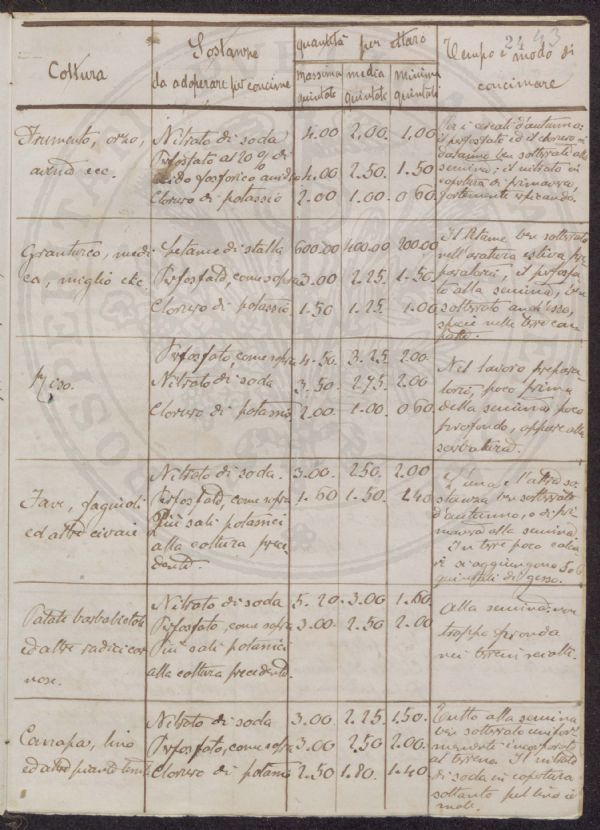 24 43
Coltura
Sostanze
da adoperare per concime
quantità per ettaro
massima
quintale
media
quintale
minima
quintale
Tempo e modo di
concimare
Frumento, orzo,
avena ecc.
Nitrato di soda 4.00 2.00 1.00
Perfosfato al 20 % di
acido fosforico 4.00 2.50 1.50
Cloruro di potassio 2.00 1.00 0 60
Per i cereali d'autunno:
il perfosfato ed il cloruro
ben sotterrati alla
semina; il nitrato in
copertura di primavera,
fortemente
Granturco, medi
ca, miglio etc.
Letame di stalla 600.00 400.00 200.00
Perfosfato, come sopra 3.00 2.25 1.50
Cloruro di potassio 1.50 1.25 1.00
Il letame ben sotterrato
nell'aratura estiva pre
paratoria; il perfosfa
to alla semina, ben
sotterrato anch'esso,
specie nelle terre com
patte.
Riso.
Perfosfato, come sopra 4.50 3.25 2.00
Nitrato di soda 3.50 2.75 2.00
Cloruro di potassio 2.00 1.00 0 60
Nel lavoro prepara
torio, poco prima
della semina, poco
profondo, oppure alla
Fave, fagiuoli
ed altre civaie
Nitrato di soda. 3.00 2.50 2.00
Perfosfato, come sopra 1.60 1.50 2.40
Più sali potassici
alla coltura prece
dente.
L'una e l'altra so
stanza ben sotterrata
d'autunno, o di pri
mavera alla semina.
In terre poco calca
ri si aggiungono 5 o 6
quintali di gesso.
Patate barbabietole
ed altre radici car
nose.
Nitrato di soda 5.20 3.00 1.60
Perfosfato, come sopra 3.00 2.50 2.00
Più sali potassici
alla coltura precedente.
Alla semina; non
troppo profonda
nei terreni sciolti.
Canapa, lino
ed altre piante tessili
Nitrato di soda 3.00 2.25 1.50.
Perfosfato, come sopra 3.00 2.50 2.00
Cloruro di potassio 2.50 1.80 1.40
Tutto alla semina
ben sotterrato unifor
memente incorporato
al terreno. Il nitrato
di soda in copertura
soltanto pel lino in